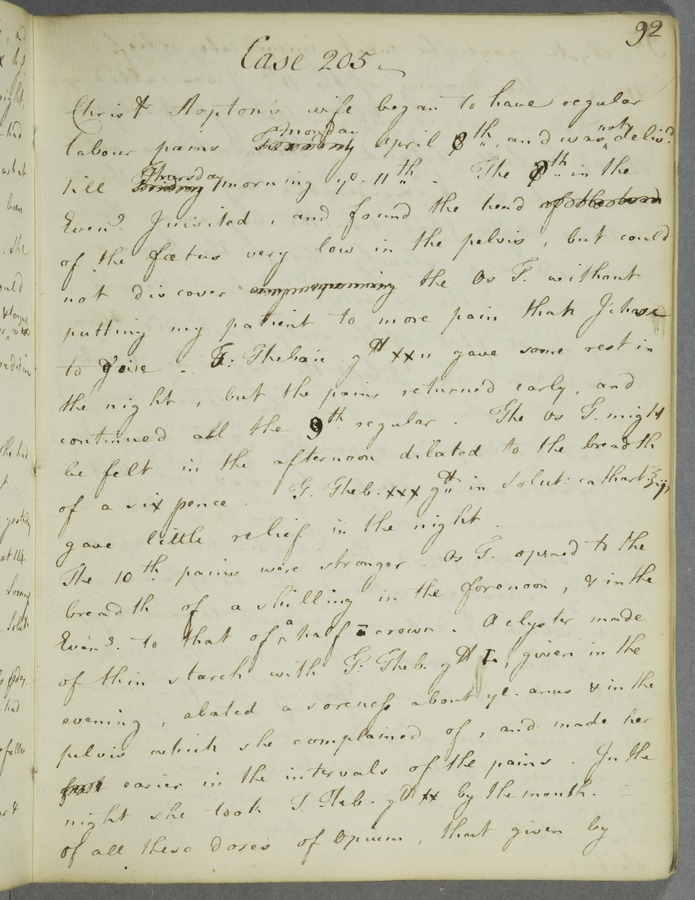 92
Case 205
Christr. Hopton's wife began to have regular
labour pains monday April 8th, and was not deliv.d
till Thursday morning ye. 11th. The 8th in the
Even.g I visited, and found the head
of the fœtus very low in the pelvis, but could
not discover the Os T. without
putting my patient to more pain than I chose
to give. T: Thebaic gtt xxv gave some rest in
the night, but the pains returned early, and
continued all the 9th regular. The Os T. might
be felt in the afternoon dilated to the breadth
of a six pence. T. Theb. xxx gtt in solut: cathart:
gave little relief in the night.
The 10th pains were stronger. Os T. opened to the
breadth of a shilling in the forenoon, & in the
Even.g to that of a half crown. A clyster made
of thin starch with T. Theb. gtt L, given in the
evening, abated a soreness about ye. anus & in the
pelvis which she complained of, and made her
easier in the intervals of the pains. In the
night she took T. Theb. gtt xx by the mouth.
Of all these doses of Opium, that given by